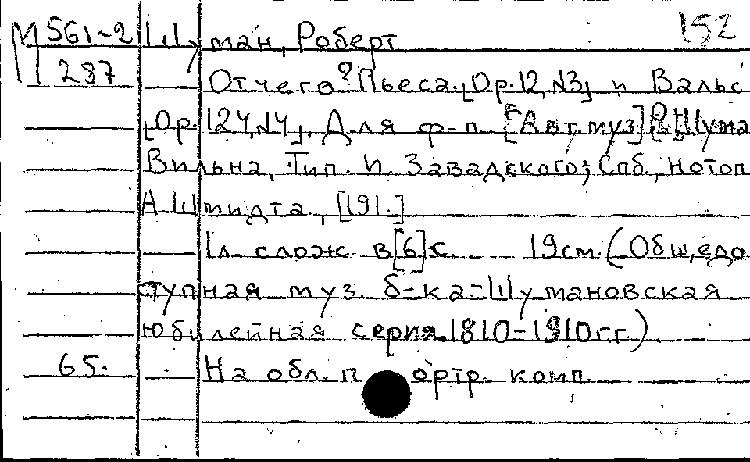 152
М 561-2 Шуман, Роберт
287 Отчего? Пьеса. [Ор. 12, №3] и Вальс
[Ор. 124, №4]. Для ф-п. [Авт. муз] Р. Шума
Вильна, Тип. И. Завадского; Спб., нотоп
А. Шмидта, [191.]
1 л слож. в [6] с. 19 см. (Общедо
ступная муз. б-ка-Шумановская
юбилейная серия. 1810-1910 гг.)
65. На обл. портр. комп